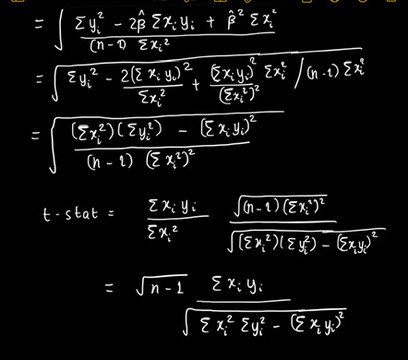 = √(Σy_i² − 2β̂ Σx_i y_i + β̂² Σx_i² / (n-1) Σx_i²)
= √(Σy_i² − 2(Σx_i y_i)² / Σx_i² + (Σx_i y_i)² / (Σx_i²)² Σx_i² / (n-1) Σx_i²)
= √((Σx_i²)(Σy_i²) − (Σx_i y_i)² / (n-1) (Σx_i²)²)
t-stat = Σx_i y_i / Σx_i² √(n-1)(Σx_i²)² / √(Σx_i²)(Σy_i²) − (Σx_i y_i)²
= √n-1 Σx_i y_i / √Σx_i² Σy_i² − (Σx_i y_i)²